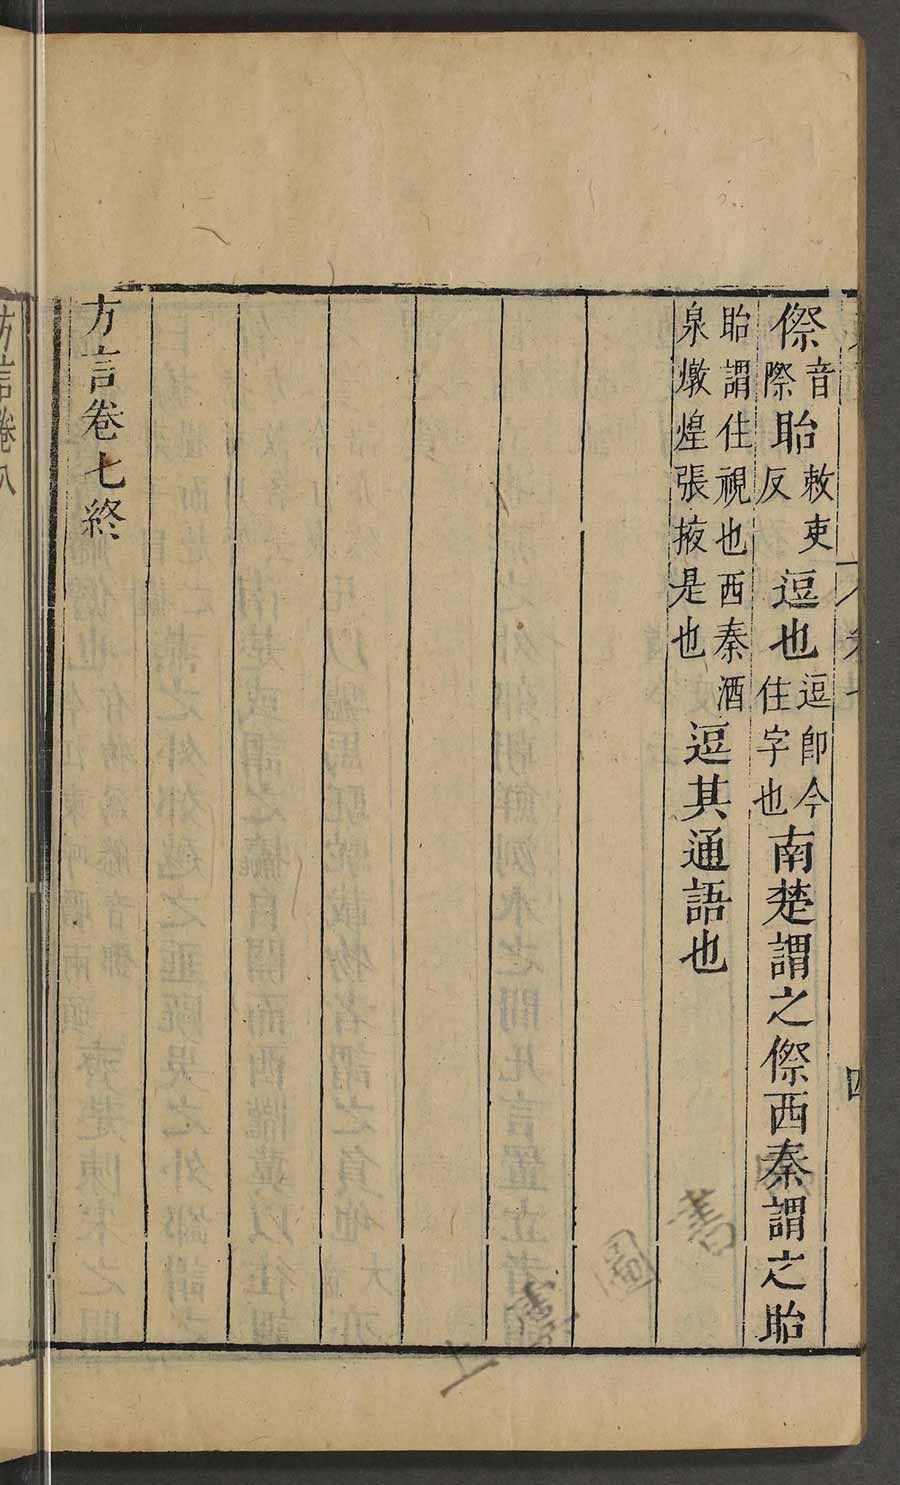 傺音際眙敕吏反逗也逗即今住字也南楚謂之傺西秦謂之眙
眙謂住視也西秦酒泉燉煌張掖是也逗其通語也
方言卷七終
方言卷八